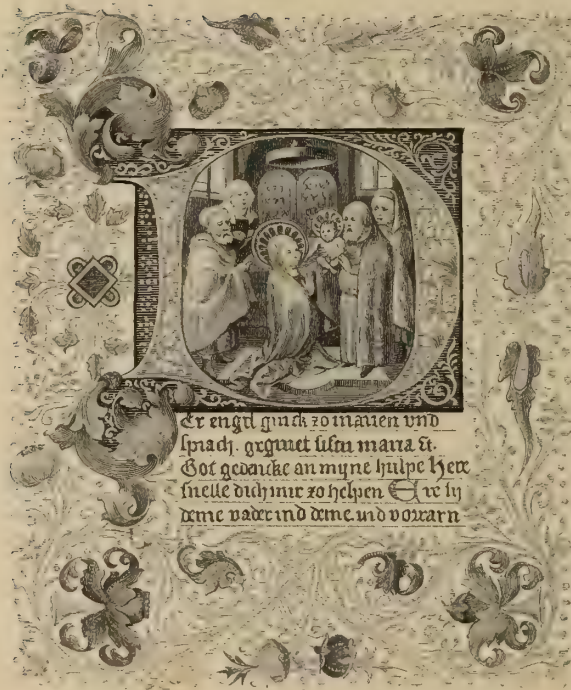 Er engel ginck zo marien vnd
sprach. gegruet sistu maria &.
Got gedancke an myne hulpe Here
snelle dich mir zo helpen Ere sy
deme vader ind deme. vid vorvarn